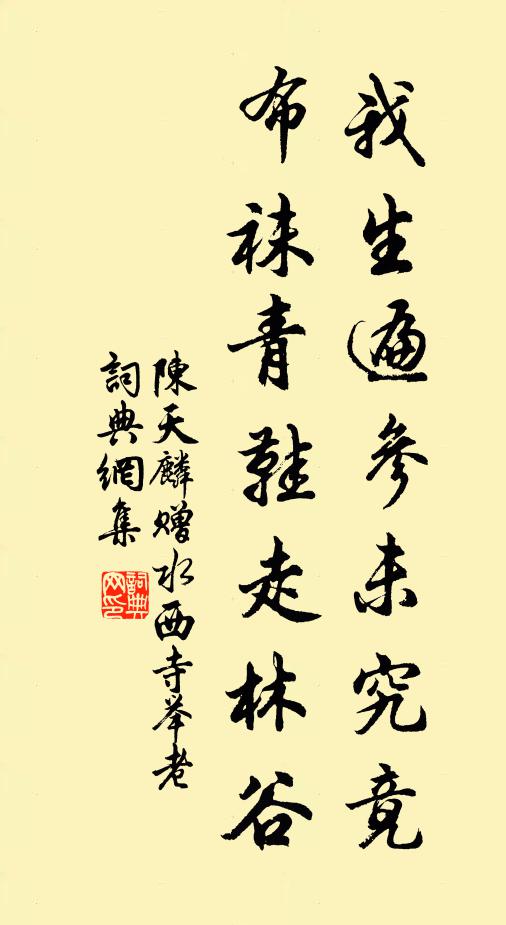 我生遍參未究竟
布袜青鞋走林谷
陳天麟贈水西寺举老
詞典網集
詞典网印